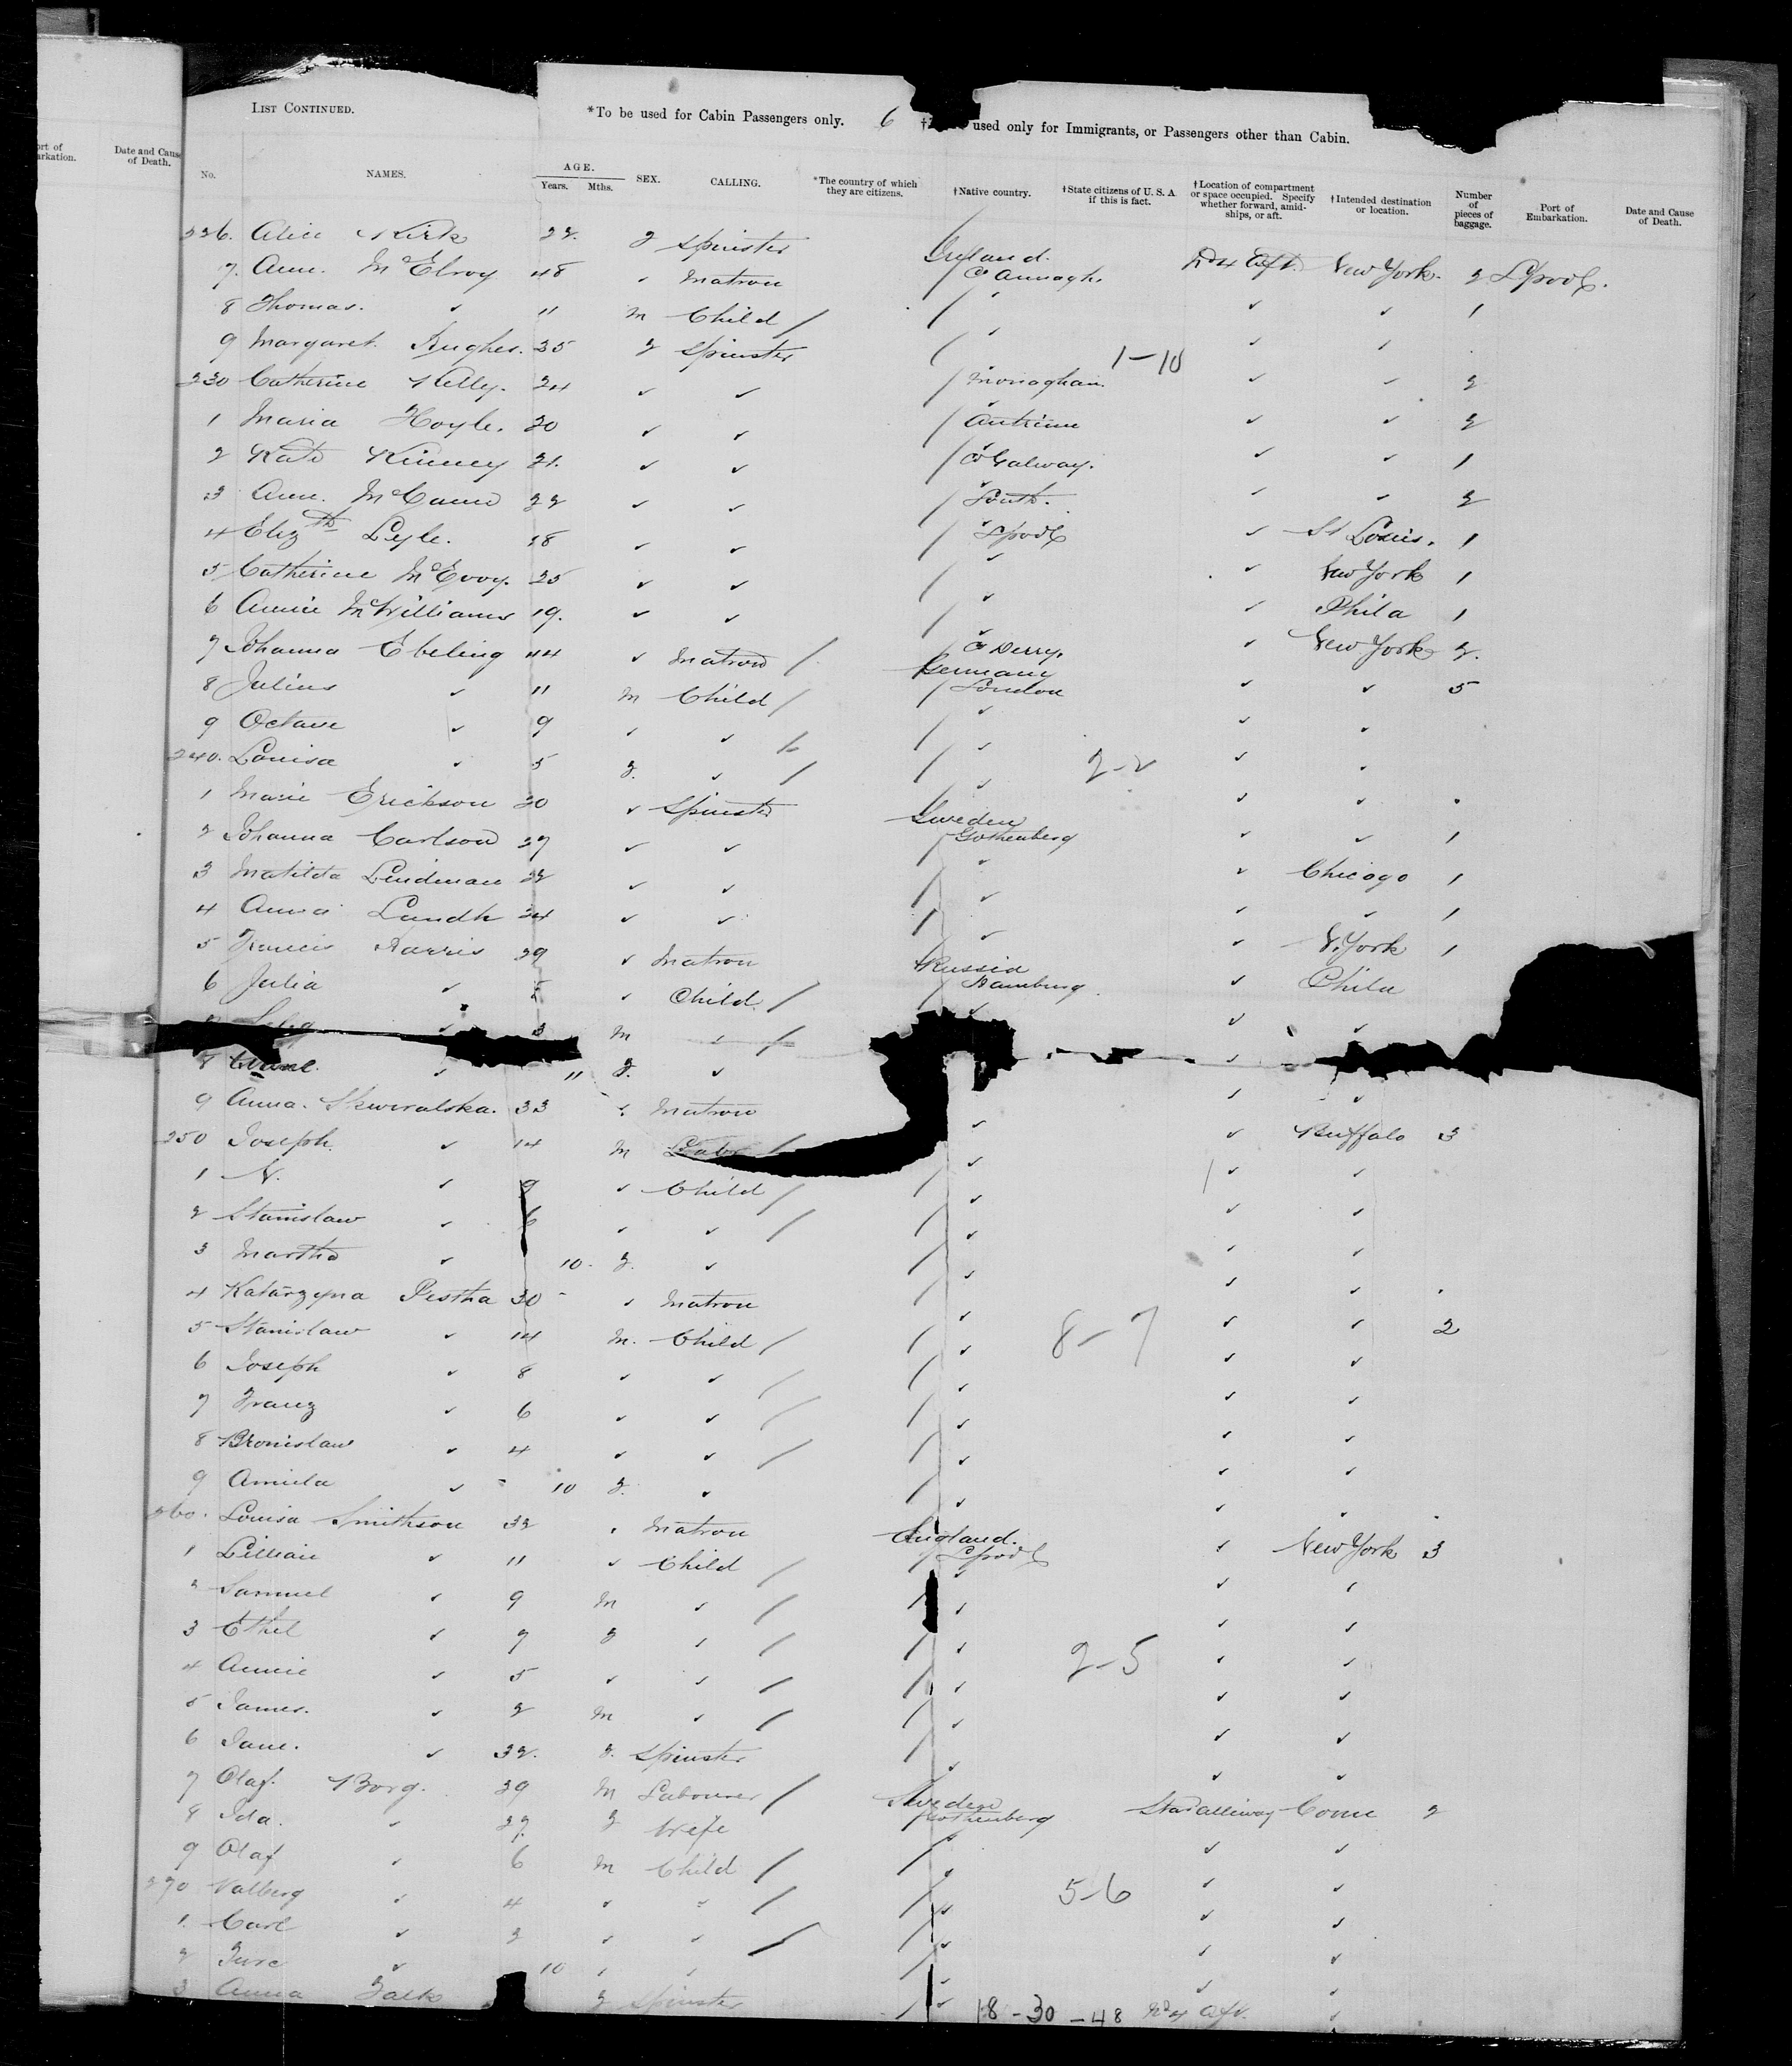 ort of
arkation.
Date and Cause
of Death.
LIST CONTINUED.
*To be used for Cabin Passengers only. 6 used only for Immigrants, or Passengers other than Cabin.
No. NAMES. AGE. Years. Mths. SEX. CALLING. *The country of which they are citizens. †Native country. †State citizens of U. S. A. if this is fact. †Location of compartment or space occupied. Specify whether forward, amidships, or aft. †Intended destination or location. Number of pieces of baggage. Port of Embarkation. Date and Cause of Death.
226. Alice Kirk 22. F Spinster / Ireland. No 4 Aft. New York. 2 L'pool.
7. Ann. McElroy 48 ✓ Matron / Co Armagh.
8 Thomas. ✓ 11 M Child / / ✓ ✓ ✓ 1
9 Margaret. Hughes. 35 F Spinster / ✓ ✓ ✓
1-10
230 Catherine Kelly. 24 ✓ ✓ / Monaghan. ✓ ✓ 2
1 Maria Hoyle. 20 ✓ ✓ / Antrim ✓ ✓ 2
2 Kate Kinney 21. ✓ ✓ / Co Galway. ✓ ✓ 1
3 Ann. McCann 22 ✓ ✓ / Louth. ✓ ✓ 2
4 Elizth Lyle. 18 ✓ ✓ / L'pool ✓ St Louis. 1
5 Catherine McEvoy. 25 ✓ ✓ / ✓ ✓ New York 1
6 Annie McWilliams 19. ✓ ✓ / ✓ ✓ Phila 1
7 Johanna Ebeling 44 ✓ Matron / Co Derry. ✓ New York 2.
Germany
8 Julius ✓ 11 M Child / / London ✓ ✓ 5
9 Octave ✓ 9 ✓ ✓ / / ✓ ✓ ✓
240. Louisa ✓ 5 F. ✓ / / ✓ 2-2 ✓
1 Marie Erickson 20 ✓ Spinster Sweden ✓ ✓
2 Johanna Carlson 27 ✓ ✓ / Gothenberg ✓ ✓ 1
3 Matilda Lindman 22 ✓ ✓ / ✓ ✓ Chicago 1
4 Anna Lundh 24 ✓ ✓ / ✓ ✓ ✓ 1
5 Francis Harris 29 ✓ Matron Russia ✓ N. York 1
6 Julia ✓ ✓ Child / / Hamburg ✓ Phila
✓ 3 M ✓ / ✓ ✓ ✓
8 ✓ 11 F. ✓ ✓
9 Anna. Skworalska. 33 ✓ Matron ✓ ✓
250 Joseph. ✓ 14 M / ✓ ✓ Buffalo 3
1 N. ✓ 9 ✓ Child / / ✓ ✓ ✓
2 Stanislaw ✓ 6 ✓ ✓ / / ✓ ✓ ✓
3 Martha ✓ 10. F. ✓ / ✓ ✓ ✓
4 Katarzyna Pestha 30 ✓ Matron / ✓ ✓ ✓
5 Stanislaw ✓ 14 M. Child / / ✓ 8-7 ✓ ✓ 2
6 Joseph ✓ 8 ✓ ✓ / / ✓ ✓ ✓
7 Franz ✓ 6 ✓ ✓ / / ✓ ✓ ✓
8 Bronislaw ✓ 4 ✓ ✓ / / ✓ ✓ ✓
9 Amiela ✓ 10 F. ✓ / ✓ ✓ ✓
260. Louisa Smithson 32 ✓ Matron England. ✓ New York 3
1 Lillian ✓ 11 ✓ Child / / L'pool ✓
2 Samuel ✓ 9 M ✓ / / ✓ ✓ ✓
3 Ethel ✓ 7 F ✓ / / ✓ 2-5 ✓ ✓
4 Annie ✓ 5 ✓ ✓ / / ✓ ✓ ✓
5 James. ✓ 2 M ✓ / / ✓ ✓ ✓
6 Jane. ✓ 32. F. Spinster / ✓ ✓ ✓
7 Olaf. Borg. 29 M Labourer / Sweden Conn 2
8 Ida. ✓ 27. F Wife Gothenberg
9 Olaf ✓ 6 M Child / / ✓ ✓ ✓
270 Valberg ✓ 4 ✓ ✓ / / ✓ 5-6 ✓ ✓
1. Carl ✓ 2 ✓ ✓ / / ✓ ✓ ✓
2 Ture ✓ 10 ✓ ✓ / ✓ ✓ ✓
3 Anna Falk F Spinster / ✓ 18-30-48 No 4 Aft. ✓